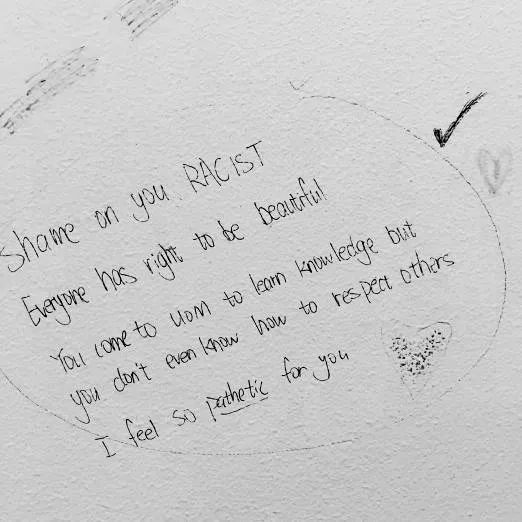 Shame on you RACIST
Everyone has right to be beautiful
You come to UOM to learn knowledge but
you don't even know how to respect others
I feel so pathetic for you